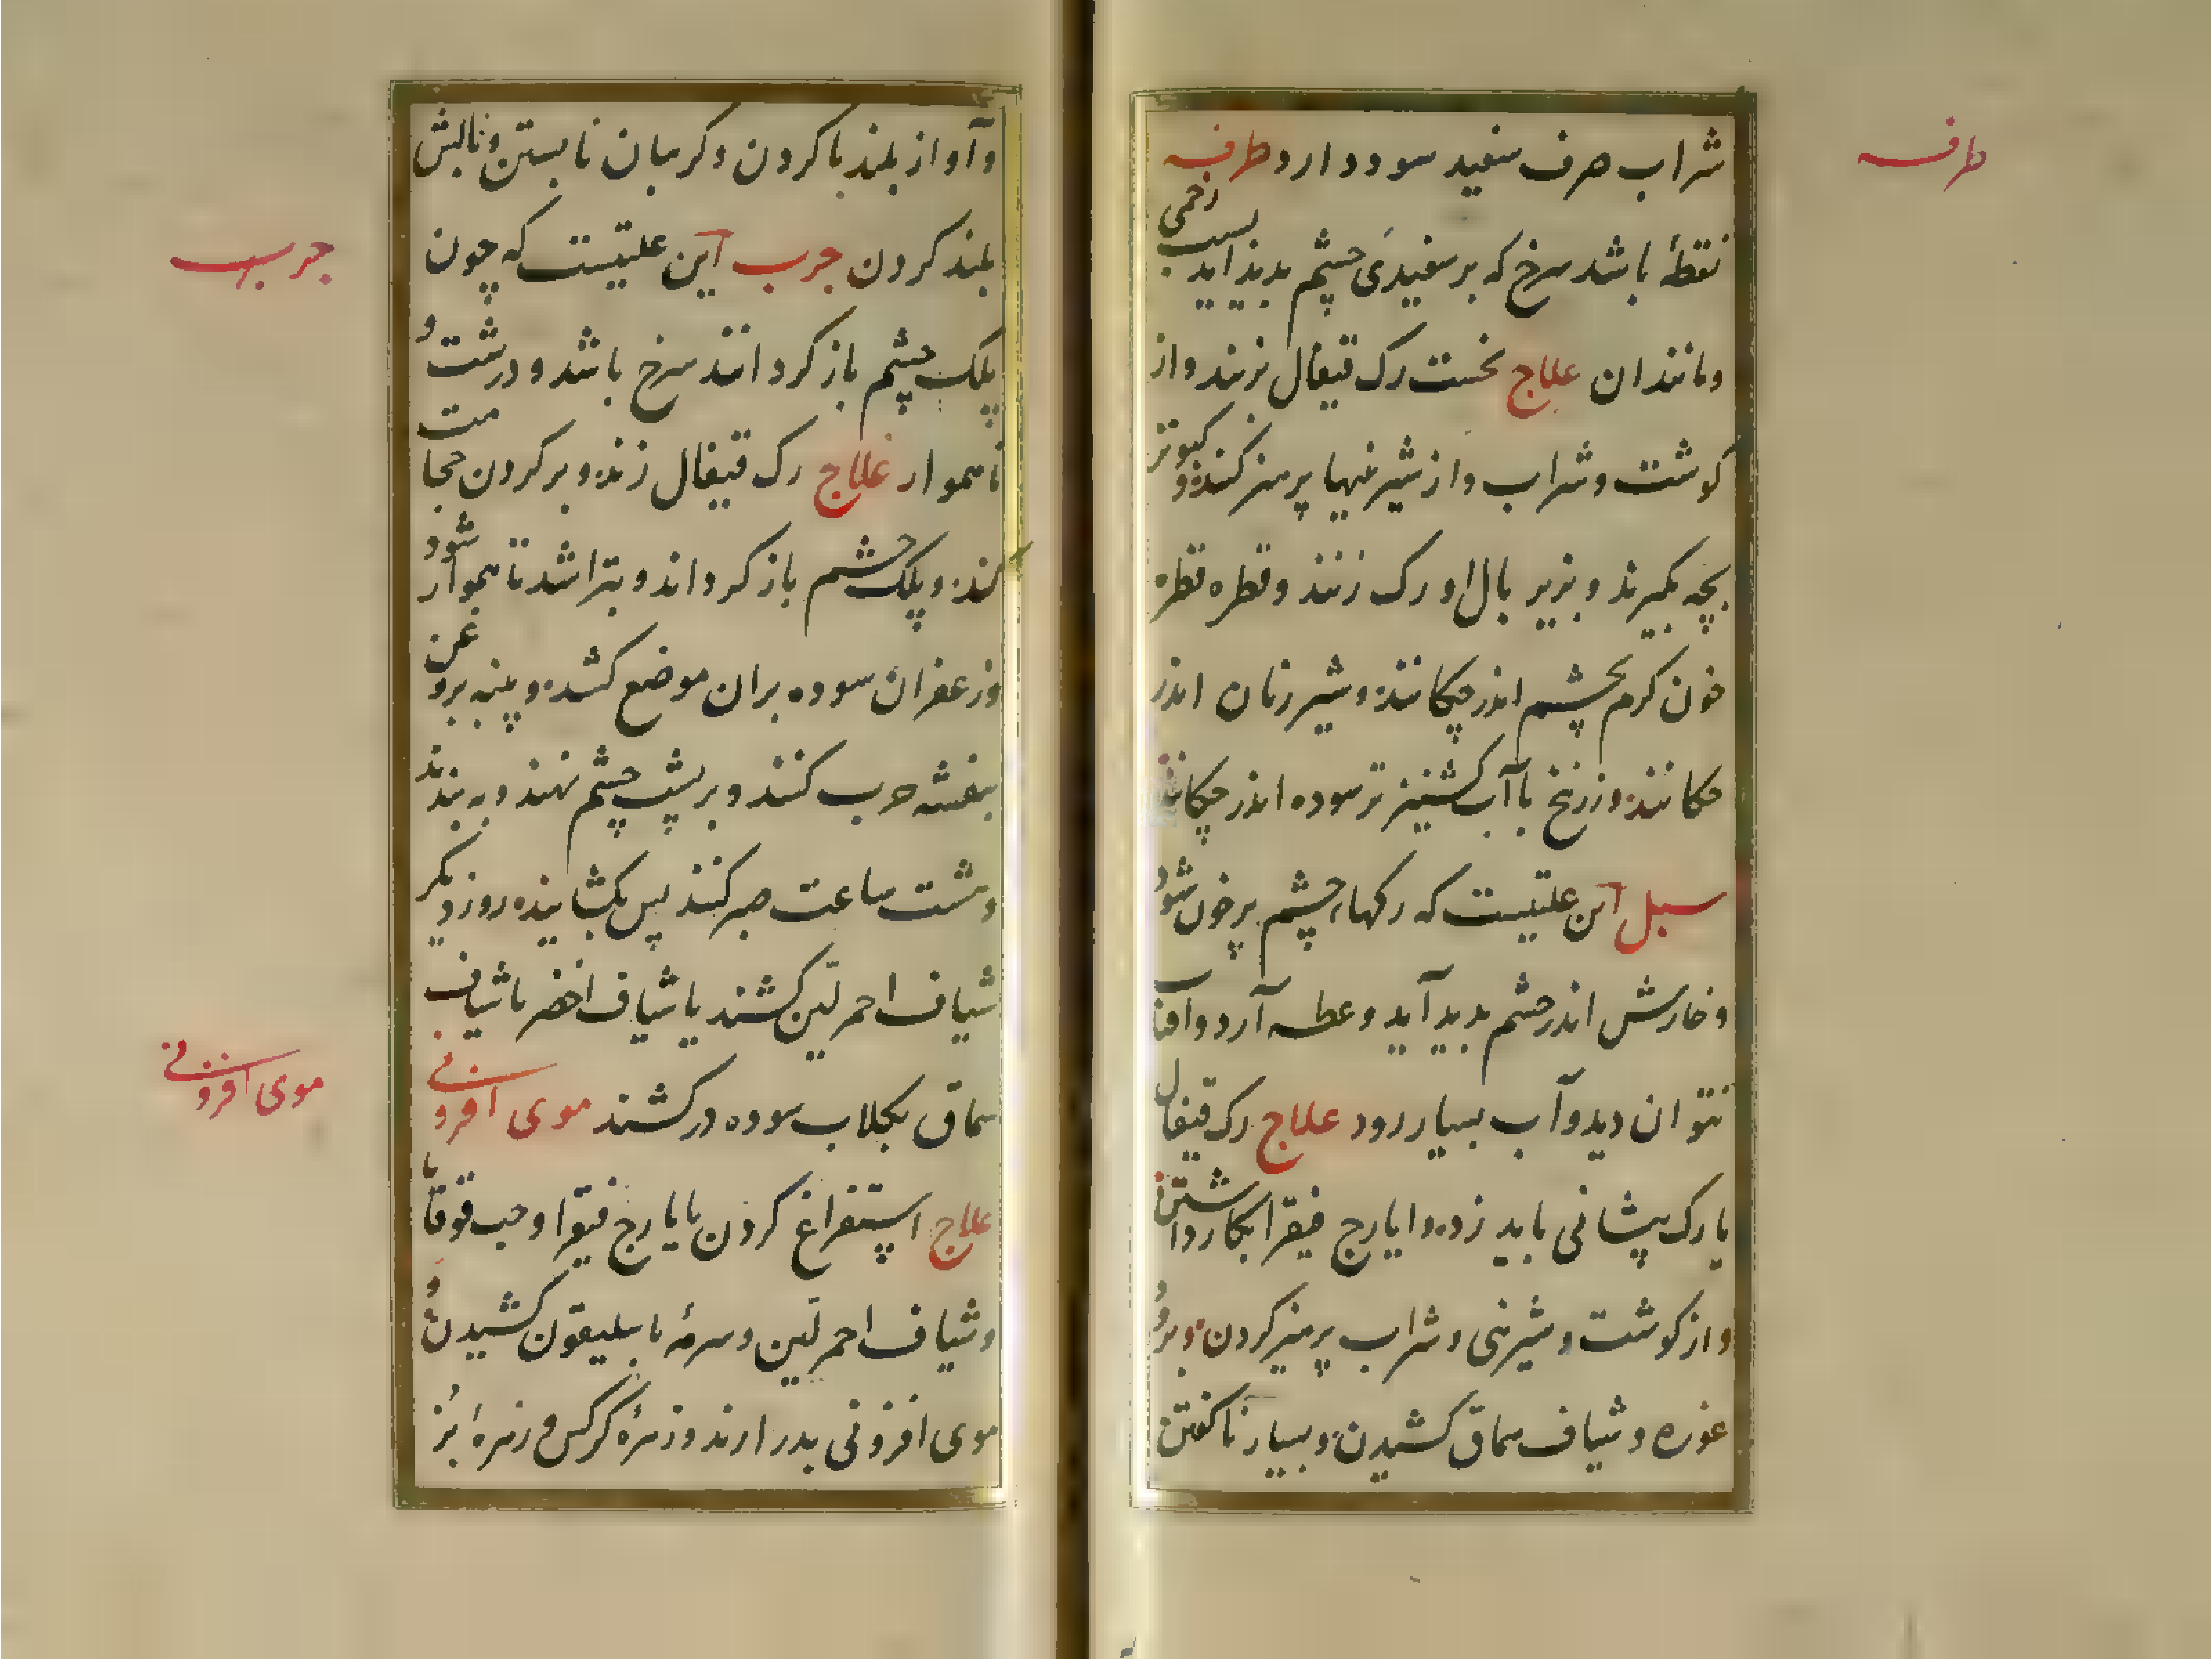 طرفه
شراب صرف سفید سود دارد طرفه
نقطهٔ باشد سرخ که بر سفیدی چشم بدید اید بسبب زخمی
و مانند ان علاج نخست رک قیفال بزنند و از
کوشت و شراب و از شیرینیها پرهیز کنند و کبوتر
بچه بکیرند و بزیر بال او رک زنند و قطره قطره
خون کرم بچشم اندر چکانند و شیر زنان اندر
چکانند و زرنیخ با آب کشنیز تر سوده اندر چکانند
سبل این علتیست که رکهاء چشم پرخون شود
و خارش اندر چشم بدید آید و عطسه آرد و آفتاب
نتوان دید و آب بسیار رود علاج رک قیفال
یا رک پیشانی باید زد و ایارج فیقرا بکار داشتن
و از کوشت و شیرینی و شراب پرهیز کردن و برود
غوره و شیاف سماق کشیدن و بسیار ناکفتن
و آواز بلند ناکردن و کریبان نابستن و بالش
بلند کردن جرب این علتیست که چون
جرب
پلک چشم باز کردانند سرخ باشد و درشت و
ناهموار علاج رک قیفال زند و بر کردن حجامت
کند و پلک چشم باز کرداند و بتراشد تا هموار شود
و زعفران سوده بران موضع کشد و پنبه بروغن
بنفشه چرب کنند و بر پشت چشم نهند و به بندند
و هشت ساعت صبر کنند پس بکشایند روز دیکر
شیاف احمر لیّن کشند یا شیاف اخضر یا شیاف
سماق بکلاب سوده در کشند موی افزونی
موی افزونی
علاج استفراغ کردن بایارج فیقرا و حب قوقایا
و شیاف احمر لیّن و سرمهٔ باسلیقون کشیدن و
موی افزونی بدر ارند و زهرهٔ کرکس و زهرهٔ بُز